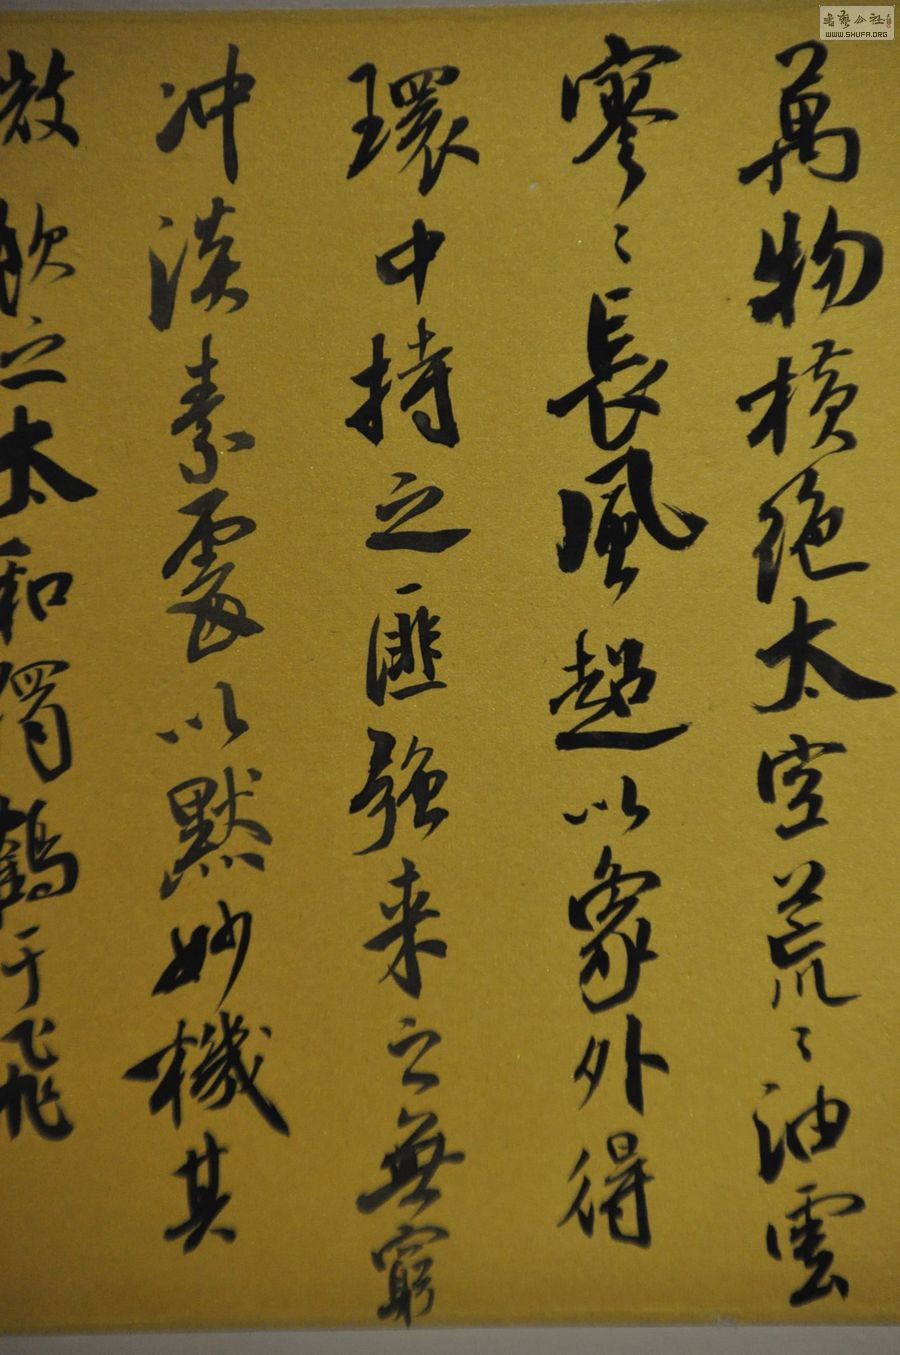 萬物橫絕太空荒〻油雲
寥〻長風超以象外得
環中持之匪強來之無窮
沖淡素處以默妙機其
微飲之太和獨鶴于飛
WWW.SHUFA.ORG